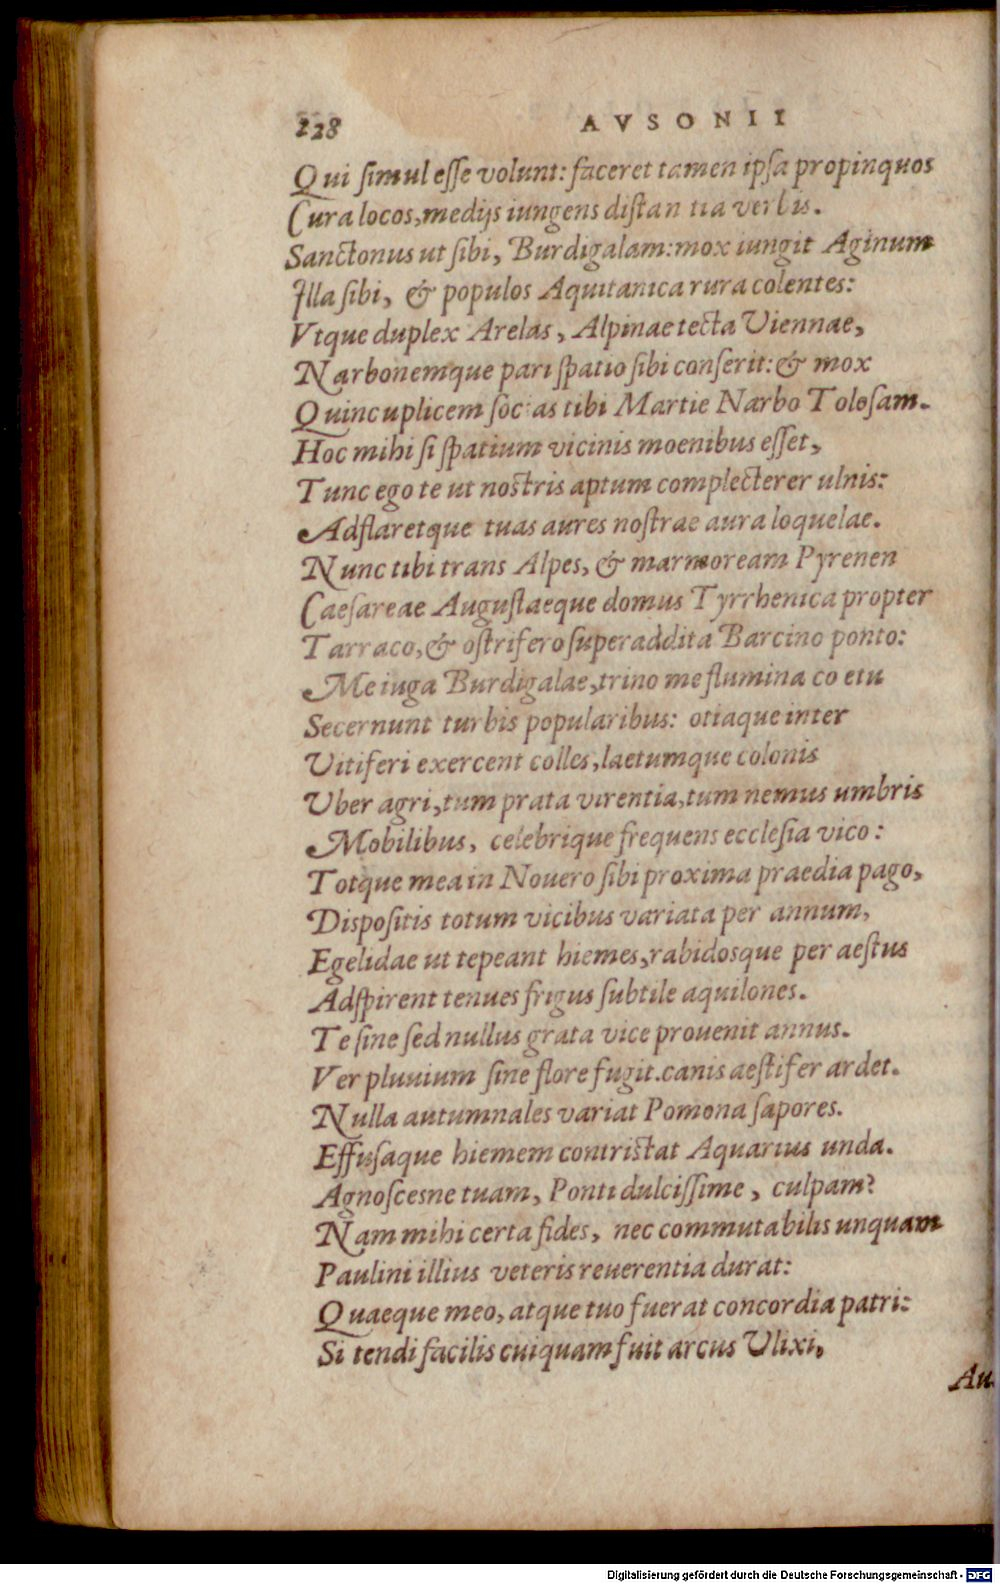 228 AVSONII
Qui simul esse volunt: faceret tamen ipsa propinquos
Cura locos, medijs iungens distan tia verbis.
Sanctonus ut sibi, Burdigalam: mox iungit Aginum
Illa sibi, & populos Aquitanica rura colentes:
Vtque duplex Arelas, Alpinae tecta Viennae,
Narbonemque pari spatio sibi conserit: & mox
Quincuplicem socias tibi Martie Narbo Tolosam.
Hoc mihi si spatium vicinis moenibus esset,
Tunc ego te ut nostris aptum complecterer ulnis:
Adflaretque tuas aures nostrae aura loquelae.
Nunc tibi trans Alpes, & marmoream Pyrenen
Caesareae Augustaeque domus Tyrrhenica propter
Tarraco, & ostrifero superaddita Barcino ponto:
Me iuga Burdigalae, trino me flumina co etu
Secernunt turbis popularibus: otiaque inter
Vitiferi exercent colles, laetumque colonis
Vber agri, tum prata virentia, tum nemus umbris
Mobilibus, celebrique frequens ecclesia vico:
Totque mea in Nouero sibi proxima praedia pago,
Dispositis totum vicibus variata per annum,
Egelidae ut tepeant hiemes, rabidosque per aestus
Adspirent tenues frigus subtile aquilones.
Te sine sed nullus grata vice prouenit annus.
Ver pluuium sine flore fugit. canis aestifer ardet.
Nulla autumnales variat Pomona sapores.
Effusaque hiemem contristat Aquarius unda.
Agnoscesne tuam, Ponti dulcissime, culpam?
Nam mihi certa fides, nec commutabilis unquam
Paulini illius veteris reuerentia durat:
Quaeque meo, atque tuo fuerat concordia patri:
Si tendi facilis cuiquam fuit arcus Vlixi,
Au-
Digitalisierung gefördert durch die Deutsche Forschungsgemeinschaft - DFG